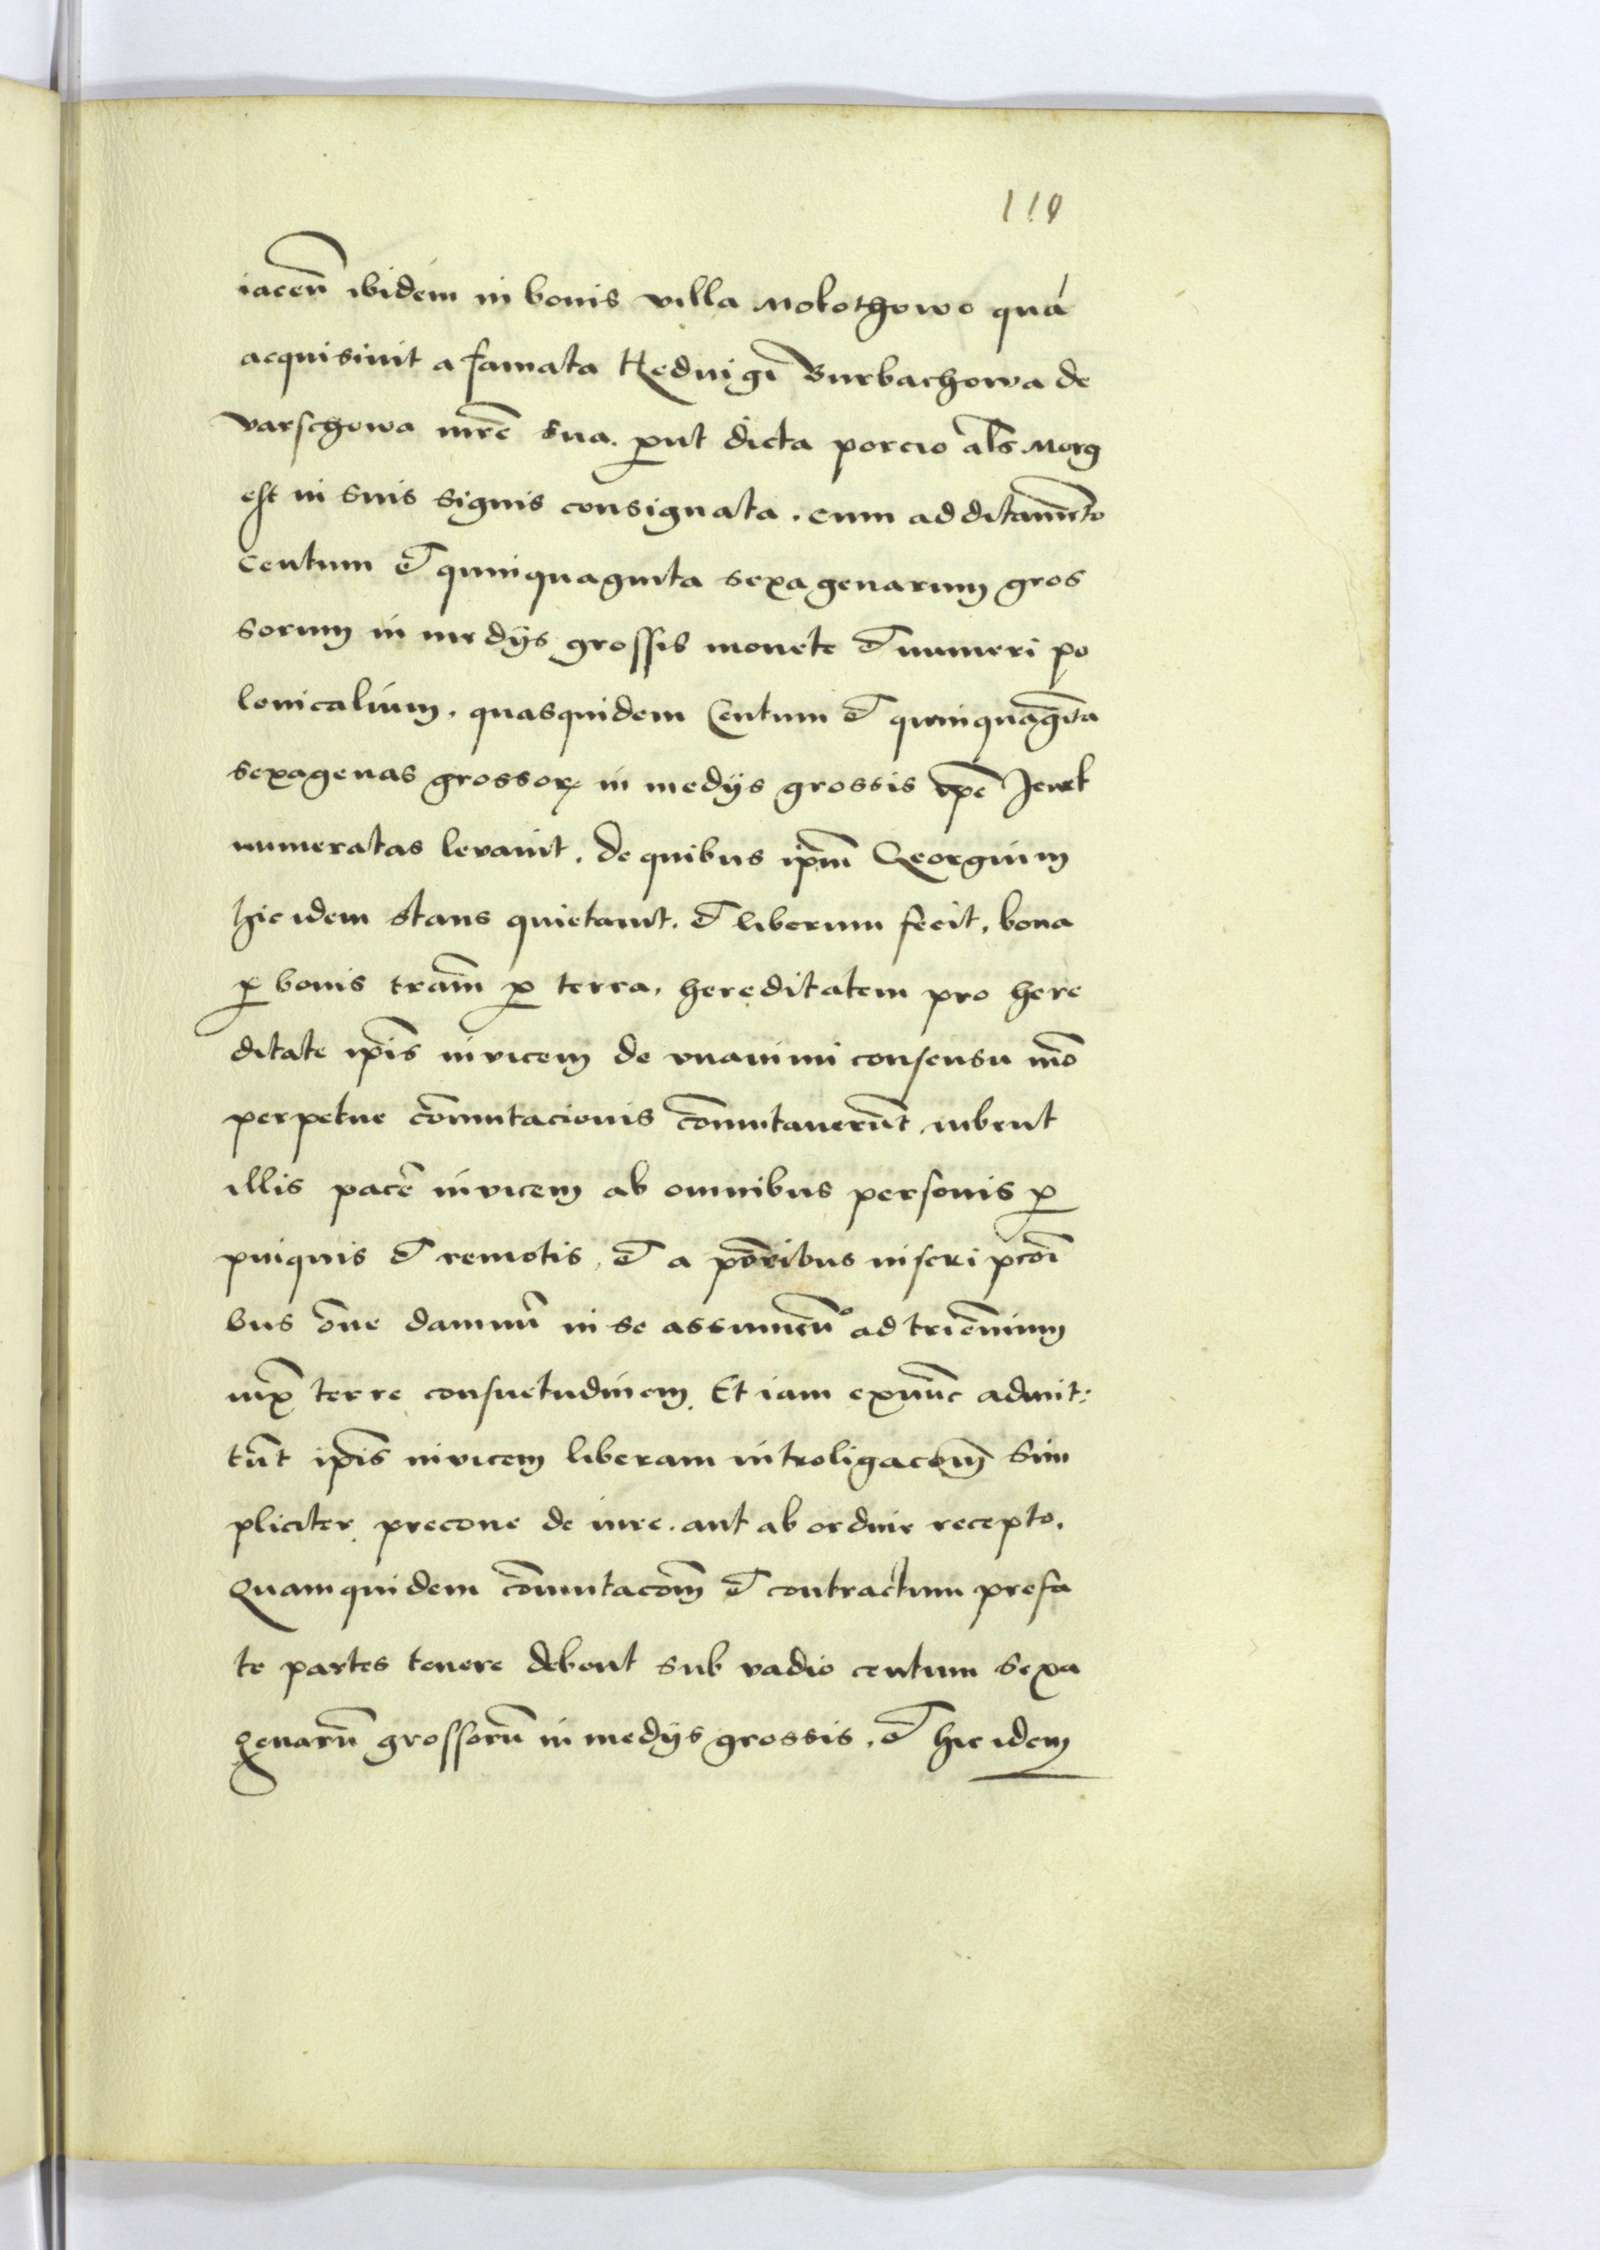 119
iacen̄ ibidem in bonis villa Mokothowo quā
acquisiuit a famata Heduigi Burbachowa de
Varschowa mr̄e sua. put dicta porcio als̄ Morg
est in suis signis consignata. cum additamēto
Centum et quinquaginta sexagenarum gros
sorum in medijs grossis monete et numeri po
lonicalium. quasquidem Centum et quinquagīta
sexagenas grossorꝝ in medijs grossis ip̄e
numeratas levavit. de quibus ip̄m Georgium
hic idem stans quietavit. et liberum fecit. bona
ꝓ bonis terām ꝓ terra. hereditatem pro here
ditate ip̄is invicem de vnanimi consensu mō
perpetue cōmutacionis cōmutauerūt iubent
illis pacē invicem ab omnibus personis ꝓ
pinquis et remotis. et a
bus ōne damnū in se assumēn̄ ad triēnnium
iuxͣ terre consuetudinem. Et iam exnūc admit:
tūt ip̄is invicem liberam introligacōm̄ sim
pliciter precone de iure. aut ab ordine recepto.
Quamquidem cōmutacōm̄ et contractum prefa
te partes tenere debent sub vadio centum sexa
genarū grossorū in medijs grossis. et hic idem